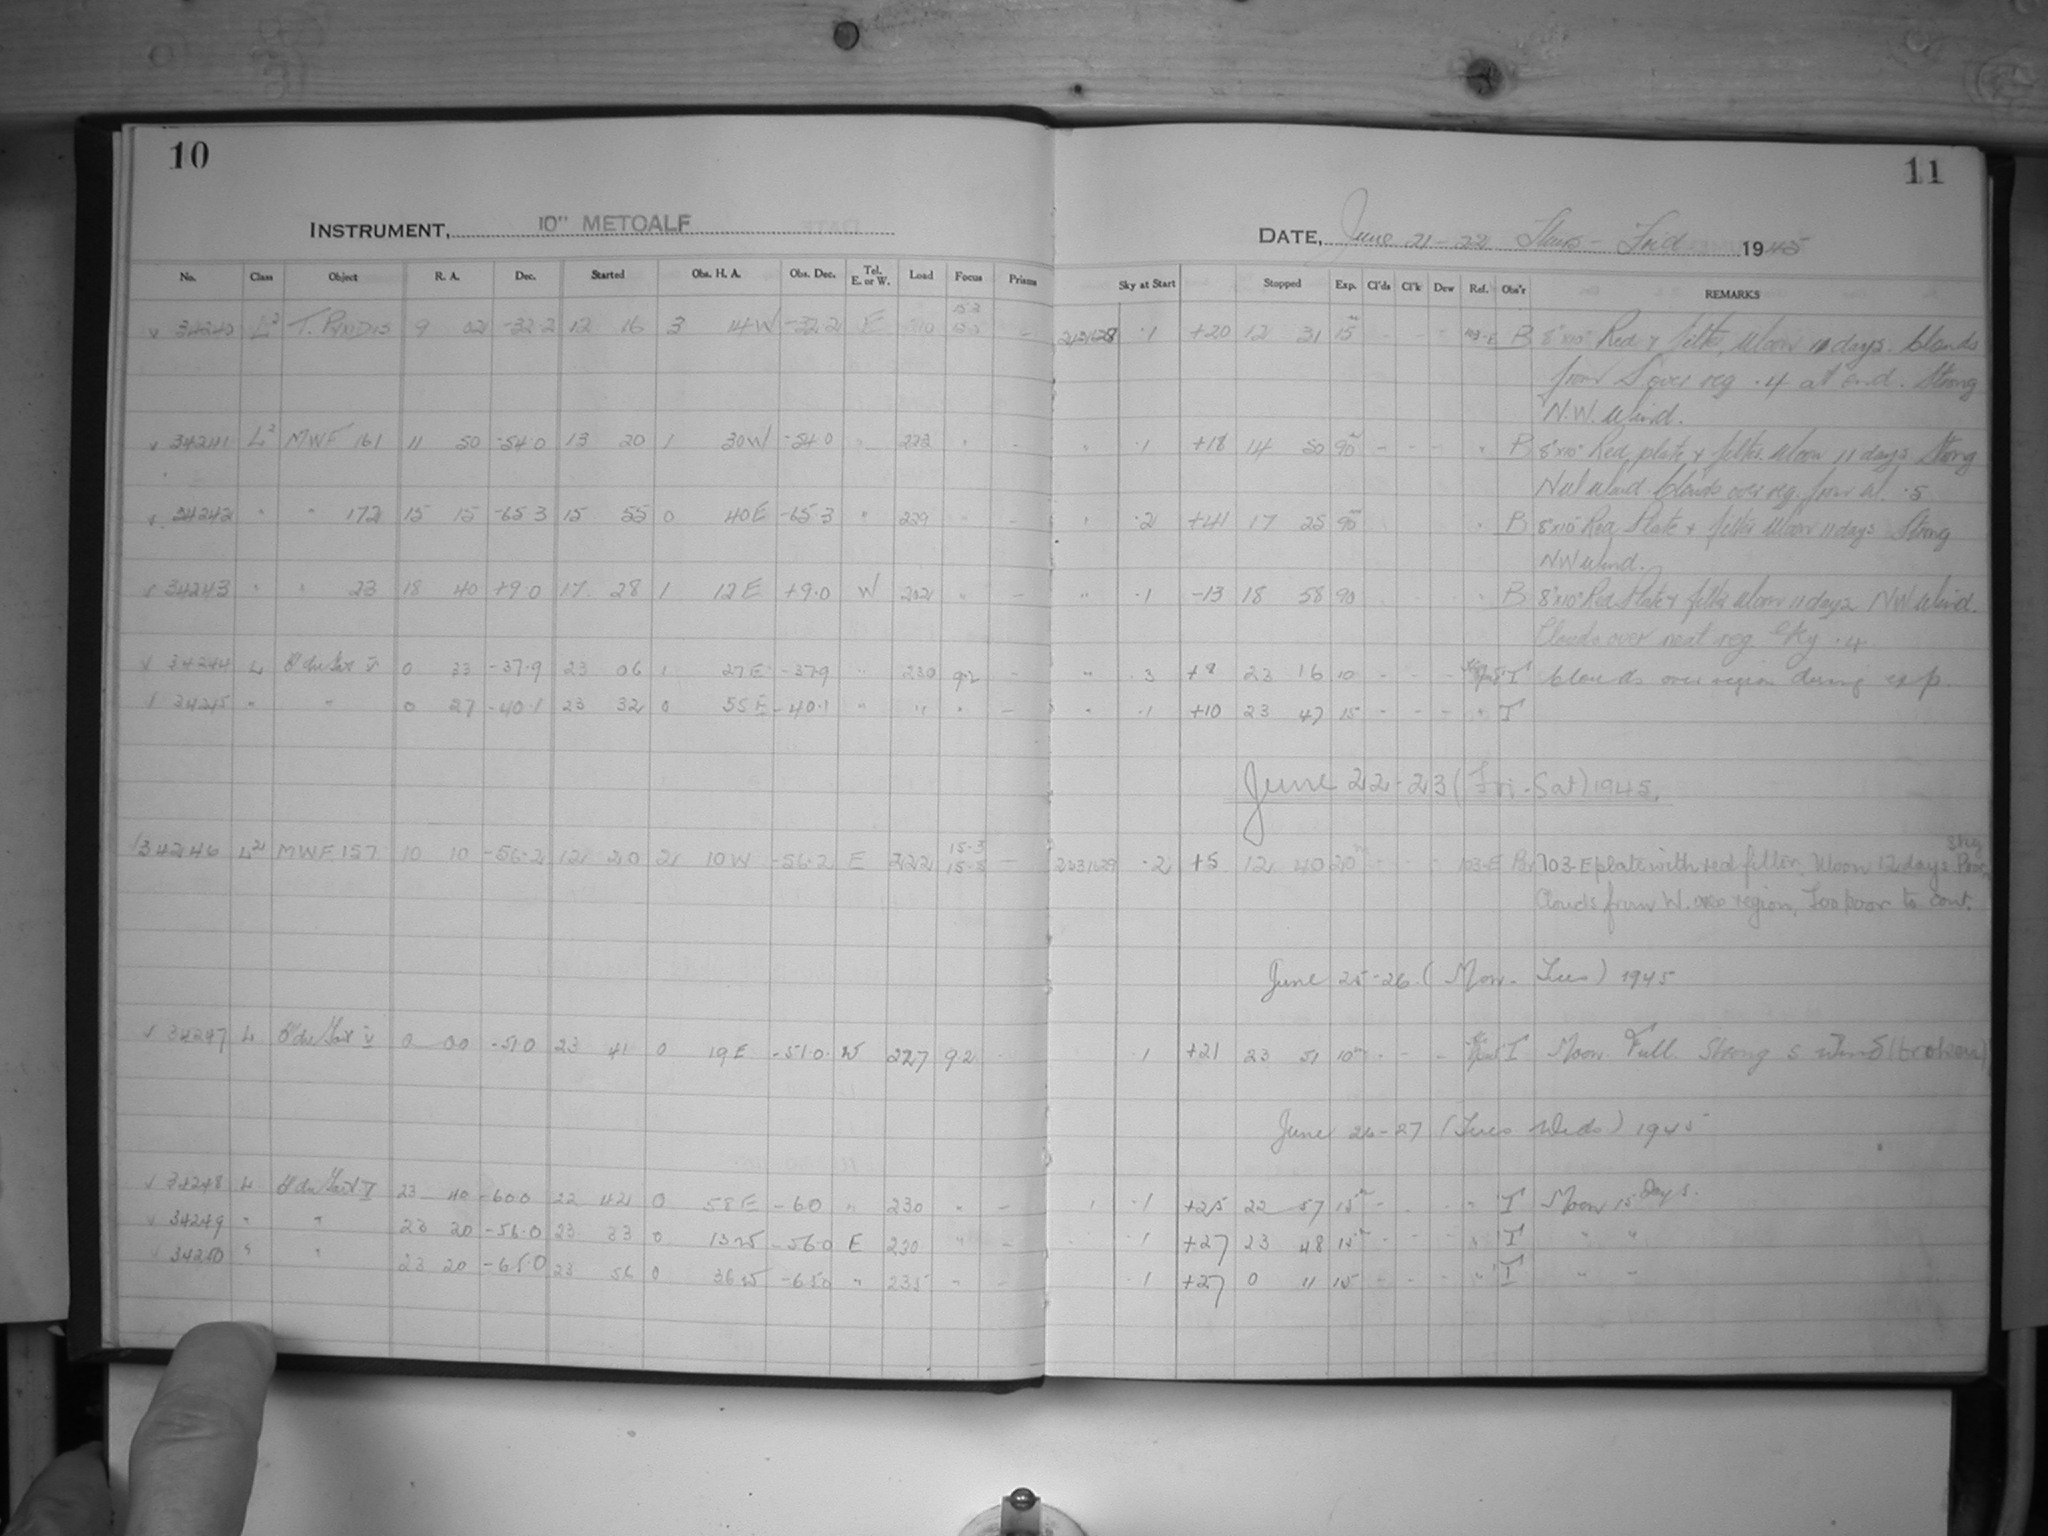 10
11
INSTRUMENT, 10" METCALF
DATE, June 21-22 Thurs - Frid 1945
No. Class Object R. A. Dec. Started Obs. H. A. Obs. Dec. Tel. E. or W. Load Focus Prisms Sky at Start Stopped Exp. Cl'ds Cl'k Dew Ref. Obs'r REMARKS
34240 L2 T. Pyxidis 9 02 -32.2 12 16 3 14W -32.2 E 210 - 2431628 .1 +20 12 31 15m - - - 103-E B 8"x10" Red & filter, Moon 11 days. Clouds
from S over reg .4 at end. Strong
N.W. Wind.
34241 L2 MWF 161 11 50 -54.0 13 20 1 30W -54.0 " 222 " - " .1 +18 14 50 90m - - - " B 8"x10" Red plate & filter. Moon 11 days Strong
NW Wind. Clouds over reg. from W. .5
34242 " " 172 15 15 -65.3 15 55 0 40E -65.3 " 229 - - " .2 +41 17 25 90m " B 8"x10" Red Plate & filter Moon 11 days Strong
NW Wind.
34243 " " 23 18 40 +9.0 17 28 1 12E +9.0 W 202 " - " .1 -13 18 58 90 " B 8"x10" Red Plate & filter Moon 11 days NW Wind.
Clouds over most reg. Sky .4
34244 L 0 33 -37.9 23 06 1 27E -37.9 " 230 92 - " 3 +8 23 16 10 - - - T Clouds over region during exp.
34245 " " 0 27 -40.1 23 32 0 55E -40.1 " " " - " .1 +10 23 47 15 - - - " T
June 22-23 (Fri-Sat) 1945.
34246 L2 MWF 157 10 10 -56.2 12 20 2 10W -56.2 E 222 15.3 15.5 - 2431629 .2 +5 12 40 20m - - - 103-E Br 103-E plate with red filter, Moon 12 days. Sky Poor,
Clouds from W. over region, Too poor to cont.
June 25-26 (Mon - Tues) 1945
34247 L 0 00 -51.0 23 41 0 19E -51.0 W 227 92 .1 +21 23 51 10m - - - T Moon Full. Strong S wind (broken)
June 26-27 (Tues Weds) 1945
34248 L 23 40 -60.0 22 42 0 58E -60 " 230 " - .1 +25 22 57 15m - - - " T Moon 15 Days.
34249 " " 23 20 -56.0 23 33 0 13W -56.0 E 230 " - .1 +27 23 48 15m - - - " T " "
34250 " " 23 20 -65.0 23 56 0 36W -65.0 " 235 " - .1 +27 0 11 15 - - - " T " "